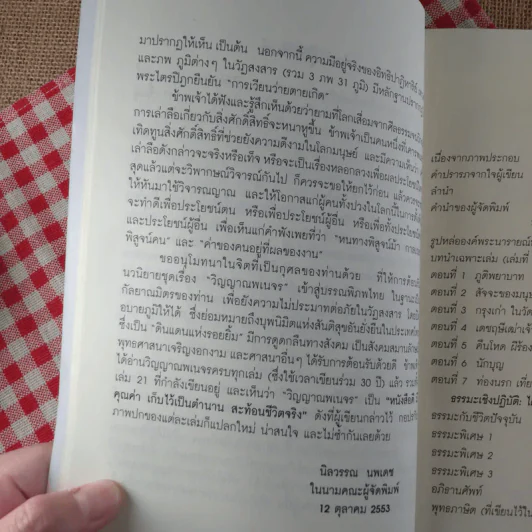 มาปรากฏให้เห็น เป็นต้น นอกจากนี้ ความมีอยู่จริงของอิทธิปาฏิหาริย์
และภพ ภูมิต่างๆ ในวัฏสงสาร (รวม 3 ภพ 31 ภูมิ) มีหลักฐานปรากฏ
พระไตรปิฎกยืนยัน “การเวียนว่ายตายเกิด”
ข้าพเจ้าได้ฟังและรู้สึกเห็นด้วยว่ายามที่โลกเสื่อมจากศีลธรรม
การเล่าลือเกี่ยวกับสิ่งศักดิ์สิทธิ์จะหนาหูขึ้น ข้าพเจ้าเป็นคนหนึ่งที่เคารพ
เทิดทูนสิ่งศักดิ์สิทธิ์ที่ช่วยยังความดีงามในโลกมนุษย์ และมีความเห็นว่า
เล่าลือดังกล่าวจะจริงหรือเท็จ หรือจะเป็นเรื่องหลอกลวงเพื่อผลประโยชน์
สุดแล้วแต่จะวิพากษณ์วิจารณ์กันไป ก็ควรจะขอให้ยกไว้ก่อน แล้ว
ให้หันมาใช้วิจารณญาณ และให้โอกาสแก่ผู้คนทั้งปวงในโลกนี้ในการ
จะทำดีเพื่อประโยชน์ตน หรือเพื่อประโยชน์ผู้อื่น หรือเพื่อทั้งประโยชน์
และประโยชน์ผู้อื่น เพื่อเห็นแก่คำพังเพยที่ว่า “หนทางพิสูจน์ม้า กาลเวลา
พิสูจน์คน” และ “ค่าของคนอยู่ที่ผลของงาน”
ขออนุโมทนาในจิตที่เป็นกุศลของท่านด้วย ที่ให้การต้อนรับ
นวนิยายชุดเรื่อง “วิญญาณพเนจร” เข้าสู่บรรณพิภพไทย ในฐานะ
กัลยาณมิตรของท่าน เพื่อยังความไม่ประมาทต่อภัยในวัฏสงสาร
อบายภูมิให้ได้ ซึ่งย่อมหมายถึงบุพนิมิตแห่งสันติสุขอันยั่งยืนในประเทศ
ซึ่งเป็น “ดินแดนแห่งรอยยิ้ม” มีการดูดกลืนทางสังคม เป็นสังคมสมานลักษณ์
พุทธศาสนาเจริญงอกงาม และศาสนาอื่นๆ ได้รับการต้อนรับด้วยดี ข้าพเจ้า
ได้อ่านวิญญาณพเนจรครบทุกเล่ม (ซึ่งใช้เวลาเขียนร่วม 30 ปี) แล้ว รวมทั้ง
เล่ม 21 ที่กำลังเขียนอยู่ และเห็นว่า “วิญญาณพเนจร” เป็น “หนังสือดี
คุณค่า เก็บไว้เป็นตำนาน สะท้อนชีวิตจริง” ดังที่ผู้เขียนกล่าวไว้
ภาพปกของแต่ละเล่มก็แปลกใหม่ น่าสนใจ และไม่ซ้ำกันเลยด้วย
นิลวรรณ นพเดช
ในนามคณะผู้จัดพิมพ์
12 ตุลาคม 2553
เนื่องจากภาพประกอบ
คำปรารภจากใจผู้เขียน
ลำนำ
คำนำของผู้จัดพิมพ์
รูปหล่อองค์พระนารายณ์
บทนำเฉพาะเล่ม (เล่มที่
ตอนที่ 1 ภูติพยาบาท
ตอนที่ 2 สัจจะของมนุษย์
ตอนที่ 3 กรุงเก่า ใน
ตอนที่ 4 เดชฤษีเฒ่า
ตอนที่ 5 คืนโหด
ตอนที่ 6 นักบุญ
ตอนที่ 7 ท่องนรก
ธรรมะเชิงปฏิบัติ:
ธรรมะกับชีวิตปัจจุบัน
ธรรมะพิเศษ 1
ธรรมะพิเศษ 2
ธรรมะพิเศษ 3
อภิธานศัพท์
พุทธภาษิต (ที่เขียนไว้ใน